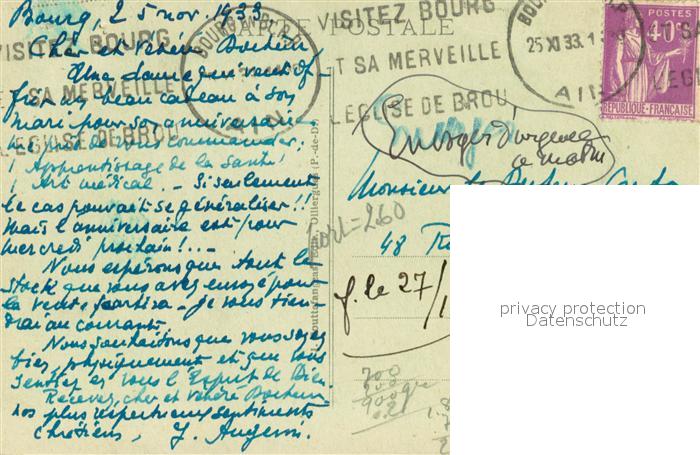 Bourg, 25 nov. 1933
Cher et vénéré Docteur
Une dame qui veut of-
frir un beau cadeau à son
mari pour son anniversaire
me de vous commander:
1 Apprentissage de la Santé!
1 Art médical. - Si seulement
le cas pouvait se généraliser!!
mais l'anniversaire est pour
mercredi prochain!...
Nous espérons que tout le
stock que vous avez envoyé pour
la vente partira - je vous tien-
drai au courant.
Nous souhaitons que vous soyez
bien, physiquement et que vous
sentiez en vous l'Esprit de Dieu
Recevez, cher et vénéré Docteur
nos plus respectueux sentiments
chrétiens, J.
CARTE POSTALE
VISITEZ BOURG
ET SA MERVEILLE
L'EGLISE DE BROU
BOURG
AIN
VISITEZ BOURG
T SA MERVEILLE
L'EGLISE DE BROU
25 XI 33
AIN
POSTES
40
REPUBLIQUE-FRANCAISE
Envoyer d'urgence
ce matin
Monsieur le Docteur
48 R
port = 260
f. le 27/1
(P.-de-D.)
privacy protection
Datenschutz